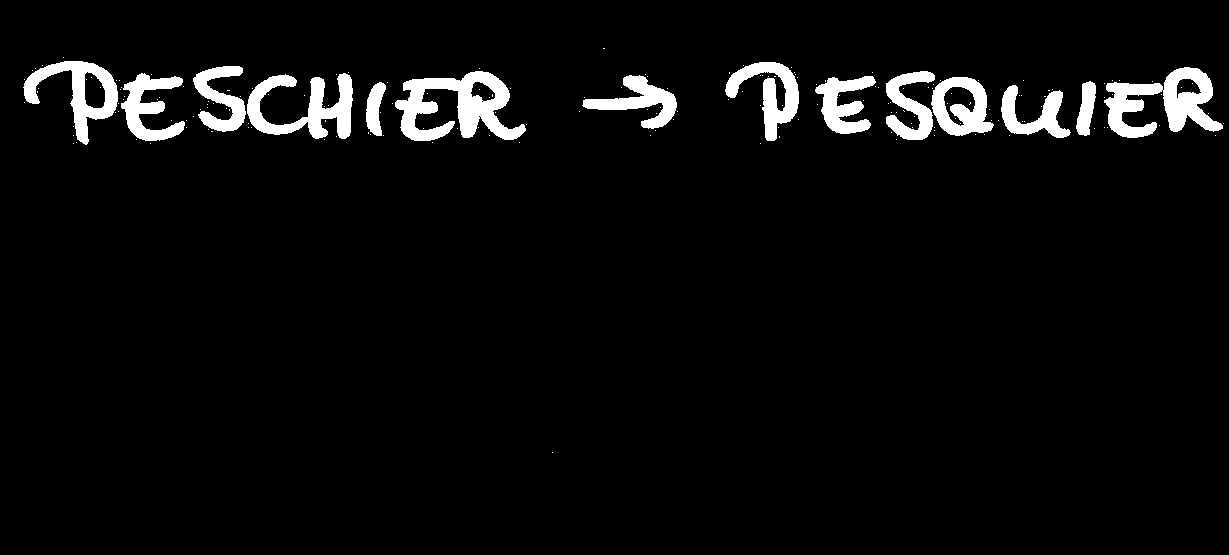 PESCHIER → PESQUIER